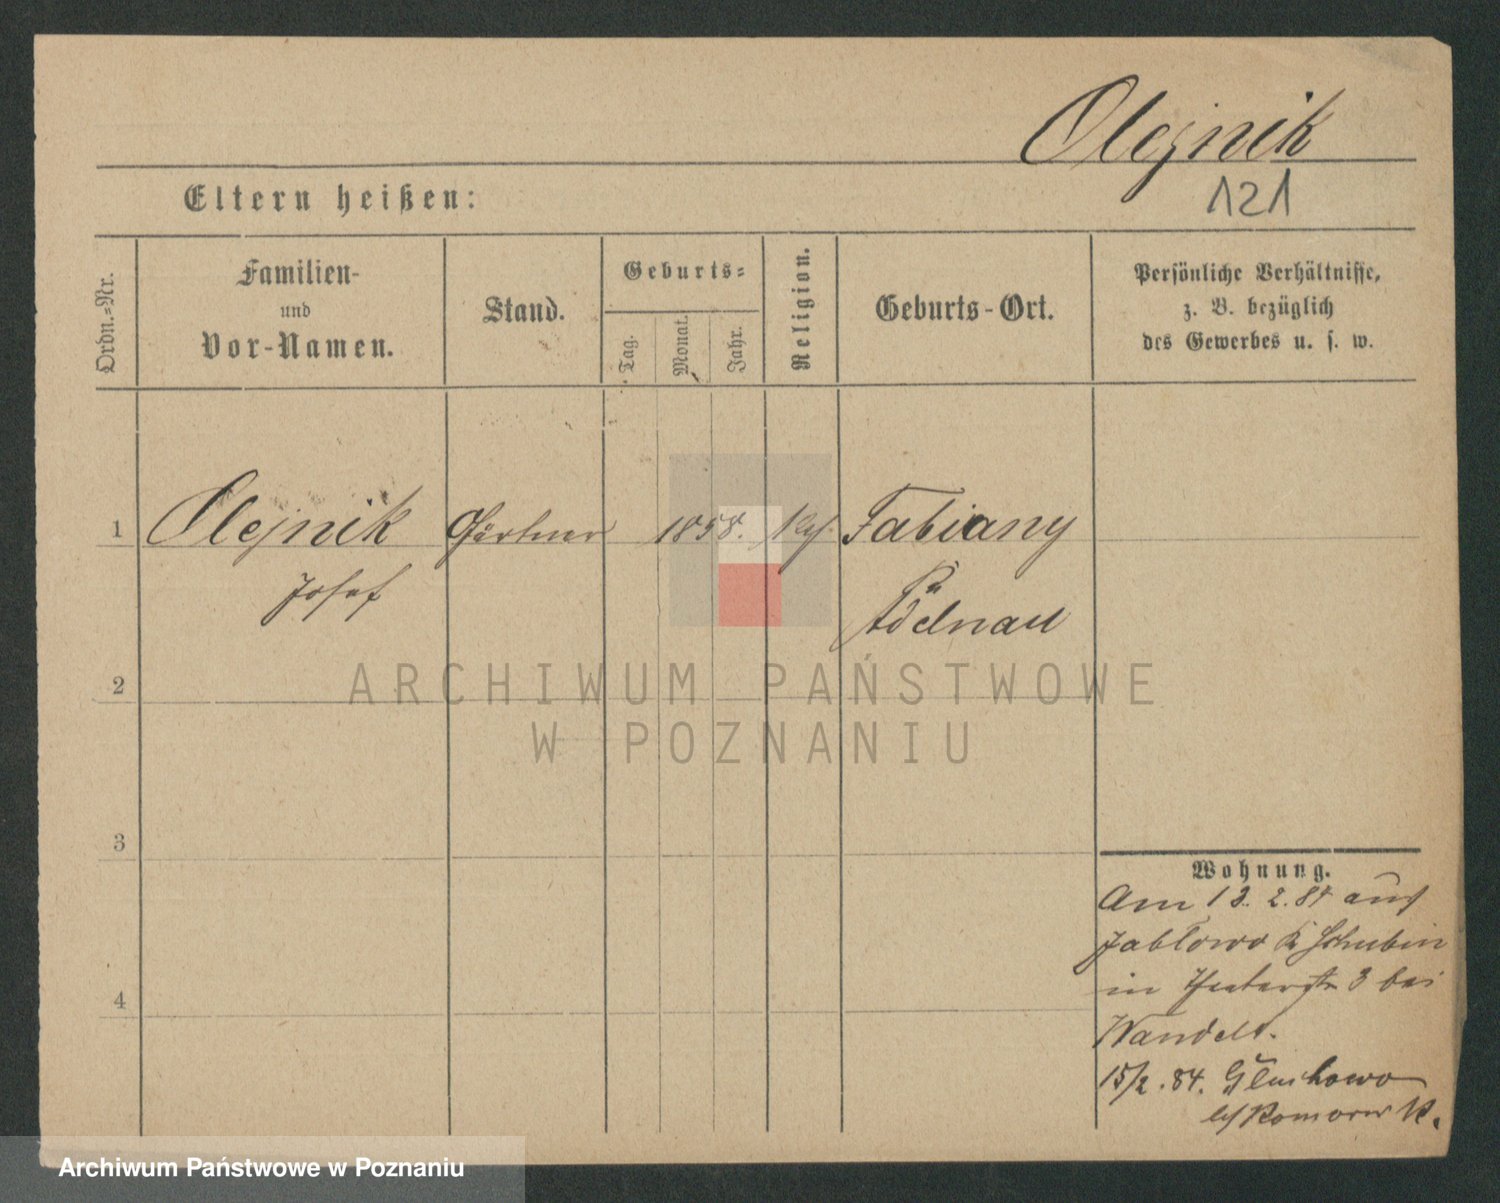 Olejnik
121
Eltern heißen:
Ordn.-Nr.
Familien-
und
Vor-Namen.
Stand.
Geburts-
Tag.
Monat.
Jahr.
Religion.
Geburts-Ort.
Persönliche Verhältnisse,
z. B. bezüglich
des Gewerbes u. s. w.
1 Olejnik Gärtner 1858. Fabiany
Josef Adelnau
2
ARCHIWUM PAŃSTWOWE
W POZNANIU
3
4
Wohnung.
Am 13. 2. 84 aus
Jabłowo Schubin
in 3 bei
Wandelt.
15/2.84. Głuchowo
Komorn
Archiwum Państwowe w Poznaniu